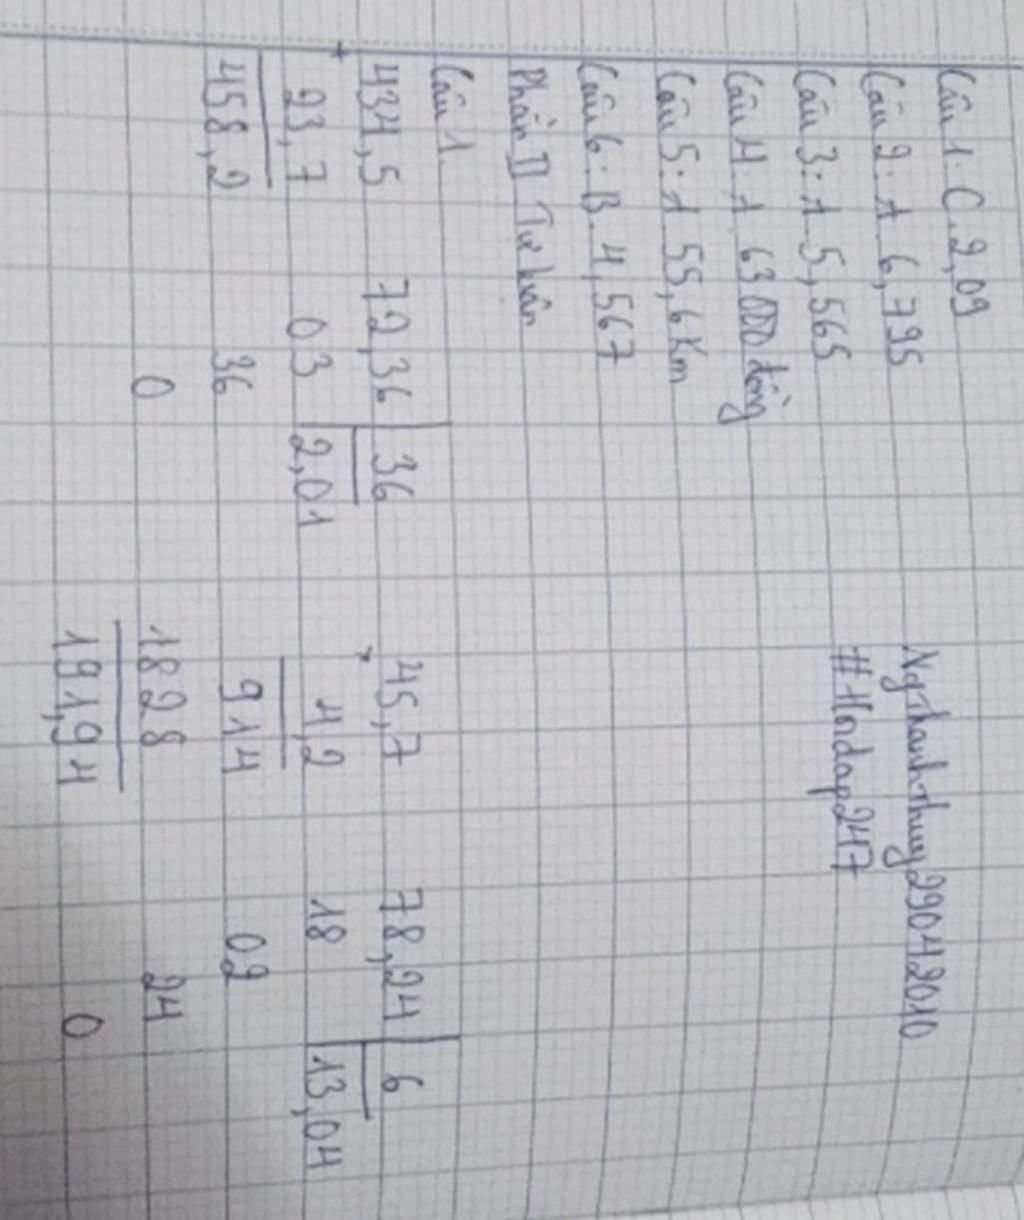 Câu 1. C. 2,09
Câu 2: A 6,795
Câu 3: A 5,565
Câu 4. A 63000 đồng
Câu 5: A 55,6 Km
Câu 6: B. 4,567
Ngthanhthuy29042010
#Hoidap247
Phần II Tự luận
Câu 1.
434,5
+
23,7
458,2
72,36 36
03 2,01
36
0
45,7
×
4,2
914
1828
191,94
78,24 6
18 13,04
02
24
0